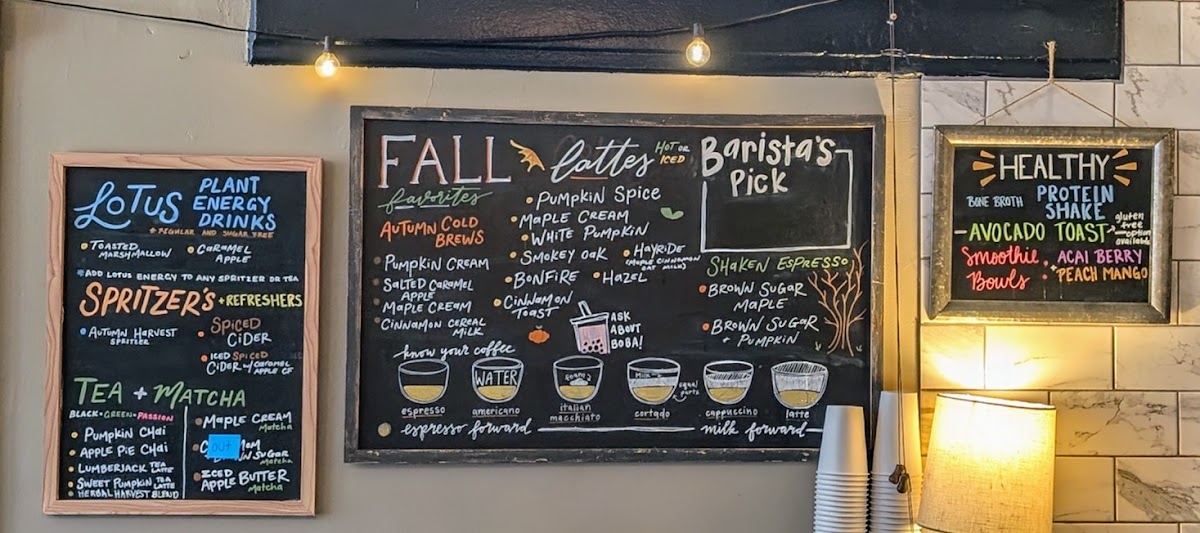 LOTUS PLANT
ENERGY
DRINKS
+ REGULAR AND SUGAR FREE
TOASTED
MARSHMALLOW
CARAMEL
APPLE
*ADD LOTUS ENERGY TO ANY SPRITZER OR TEA
SPRITZER'S + REFRESHERS
AUTUMN HARVEST
SPRITZER
SPICED
CIDER
ICED SPICED
CIDER w/ CARAMEL
APPLE CF
TEA + MATCHA
BLACK • GREEN • PASSION
PUMPKIN CHAI
APPLE PIE CHAI
LUMBERJACK TEA
LATTE
SWEET PUMPKIN TEA
LATTE
HERBAL HARVEST BLEND
MAPLE CREAM
Matcha
out
SUGAR
Matcha
ICED
APPLE BUTTER
Matcha
FALL lattes HOT OR
ICED
favorites
AUTUMN COLD
BREWS
PUMPKIN CREAM
SALTED CARAMEL
APPLE
MAPLE CREAM
CINNAMON CEREAL
MILK
PUMPKIN SPICE
MAPLE CREAM
WHITE PUMPKIN
SMOKEY OAK
HAYRIDE
(MAPLE CINNAMON
OAT MILK)
BONFIRE
HAZEL
CINNAMON
TOAST
ASK
ABOUT
BOBA!
Barista's
Pick
SHAKEN ESPRESSO
BROWN SUGAR
MAPLE
BROWN SUGAR
+ PUMPKIN
know your coffee
WATER
FOAM
MILK
equal
parts
espresso
americano
italian
macchiato
cortado
cappuccino
latte
espresso forward
milk forward
HEALTHY
BONE BROTH
PROTEIN
SHAKE
AVOCADO TOAST
gluten
free
option
available
Smoothie
Bowls:
ACAI BERRY
+ PEACH MANGO